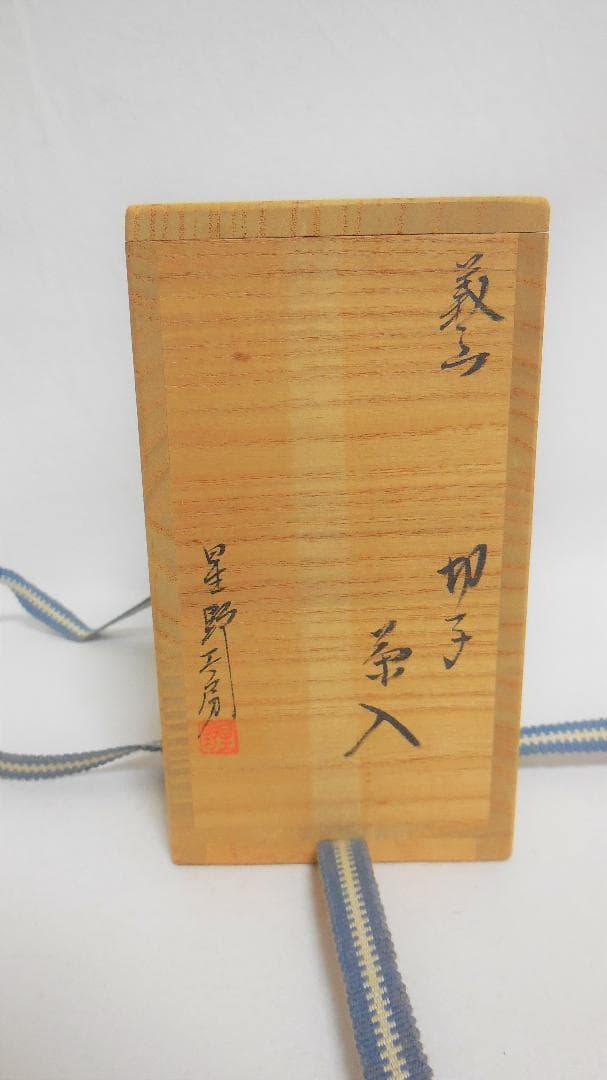 義山 切子
茶入
星野工房